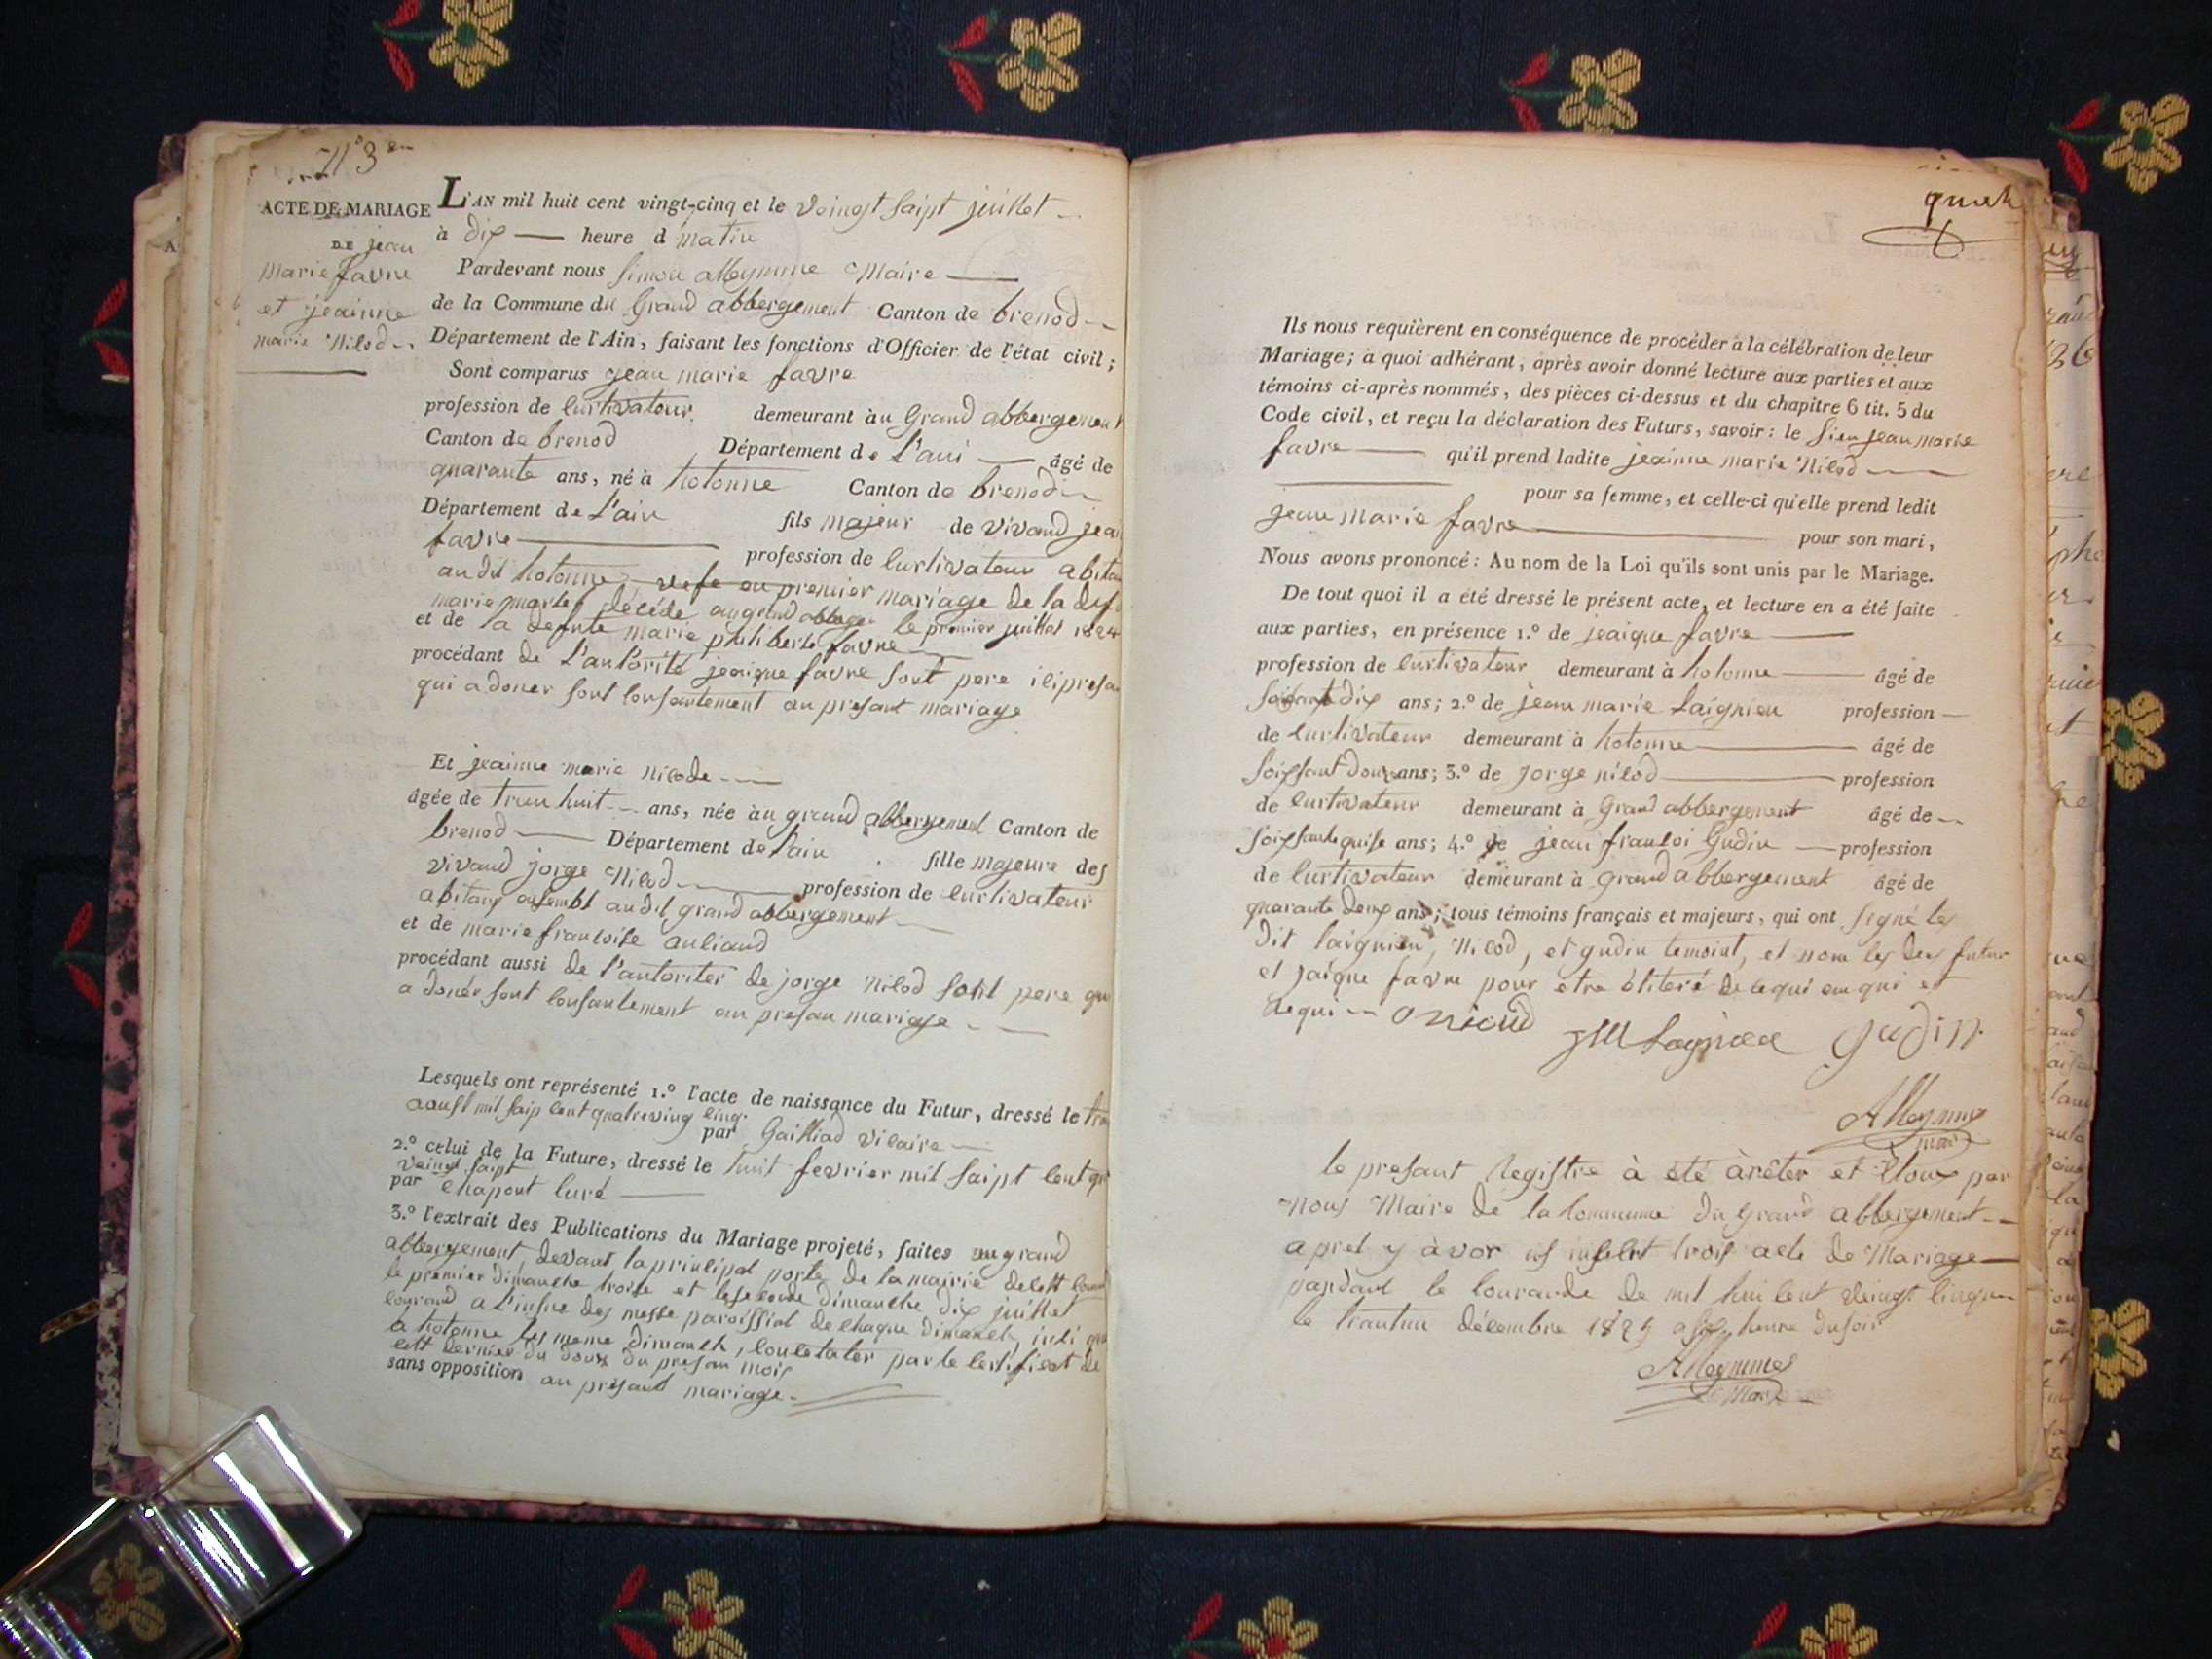 N° 3
ACTE DE MARIAGE
DE jean
marie favre
et jeainne
marie Nilod
L'AN mil huit cent vingt-cinq et le veingt saipt juillet
à dix heure d matin
Pardevant nous Simon alleymme Maire
de la Commune du Grand abbergement Canton de brenod
Département de l'Ain, faisant les fonctions d'Officier de l'état civil;
Sont comparus jean marie favre
profession de curtivateur demeurant àu Grand abbergement
Canton de brenod Département de L'ain âgé de
quarante ans, né à hotonne Canton de brenod
Département de L'ain fils majeur de vivand
favre profession de curtivateur
audit hotonne premier mariage de la
marie décédé au grand le premier juillet 1824
et de la defunte marie philiberte favre
procédant de L'autorité jeaique favre sont pere
qui a doner sont consantement au presant mariage
Et jeainne marie nilode
âgée de huit ans, née àu grand abbergement Canton de
brenod Département de L'ain fille majeure des
vivand jorge Nilod profession de curtivateur
abitans ensembl audit grand abbergement
et de marie francoise
procédant aussi de l'autoriter de jorge Nilod sont pere qui
a donér sont consantement au presan mariage
Lesquels ont représenté 1.° l'acte de naissance du Futur, dressé le
aoust mil saip cent quatreving cinq
par Gailliad vicaire
2.° celui de la Future, dressé le huit fevrier mil saipt cent
veingt saipt
par chapont curé
3.° l'extrait des Publications du Mariage projeté, faites au grand
abbergement, devant la principal porte de la mairie
le premier dimanche troise et le seconde dimanche dix juillet
courand a l'insue des messe paroissial de chaque dimanch,
a hotonne les meme dimanch, par le certificat de
dernier du doux du presan mois
sans opposition au présant mariage.
Ils nous requièrent en conséquence de procéder à la célébration de leur
Mariage; à quoi adhérant, après avoir donné lecture aux parties et aux
témoins ci-après nommés, des pièces ci-dessus et du chapitre 6 tit. 5 du
Code civil, et reçu la déclaration des Futurs, savoir: le sieu jean marie
favre qu'il prend ladite jeainne marie Nilod
pour sa femme, et celle-ci qu'elle prend ledit
jean marie favre pour son mari,
Nous avons prononcé: Au nom de la Loi qu'ils sont unis par le Mariage.
De tout quoi il a été dressé le présent acte, et lecture en a été faite
aux parties, en présence 1.° de jeaique favre
profession de curtivateur demeurant à hotonne âgé de
soixante dix ans; 2.° de jean marie Laignieu profession
de curtivateur demeurant à hotonne âgé de
soissant douze ans; 3.° de jorge nilod profession
de curtivateur demeurant à Grand abbergement âgé de
soissante quise ans; 4.° de jean francoi Gudin profession
de curtivateur demeurant à grand abbergement âgé de
quarante deux ans; tous témoins français et majeurs, qui ont signé les
dit laignieu, Nilod, et gudin temoint, et nom les deux futur
et jaique favre pour etre
requi
Gudin
Alleymme
maire
le presant Registre à été àrêter et Cloux par
nous Maire de la Commune du Grand abbergement
apret y àvor trois acte de Mariage
pandant le de mil hui cent veingt cinque
le décembre 1825 a heure du soir
Alleymme
Maire